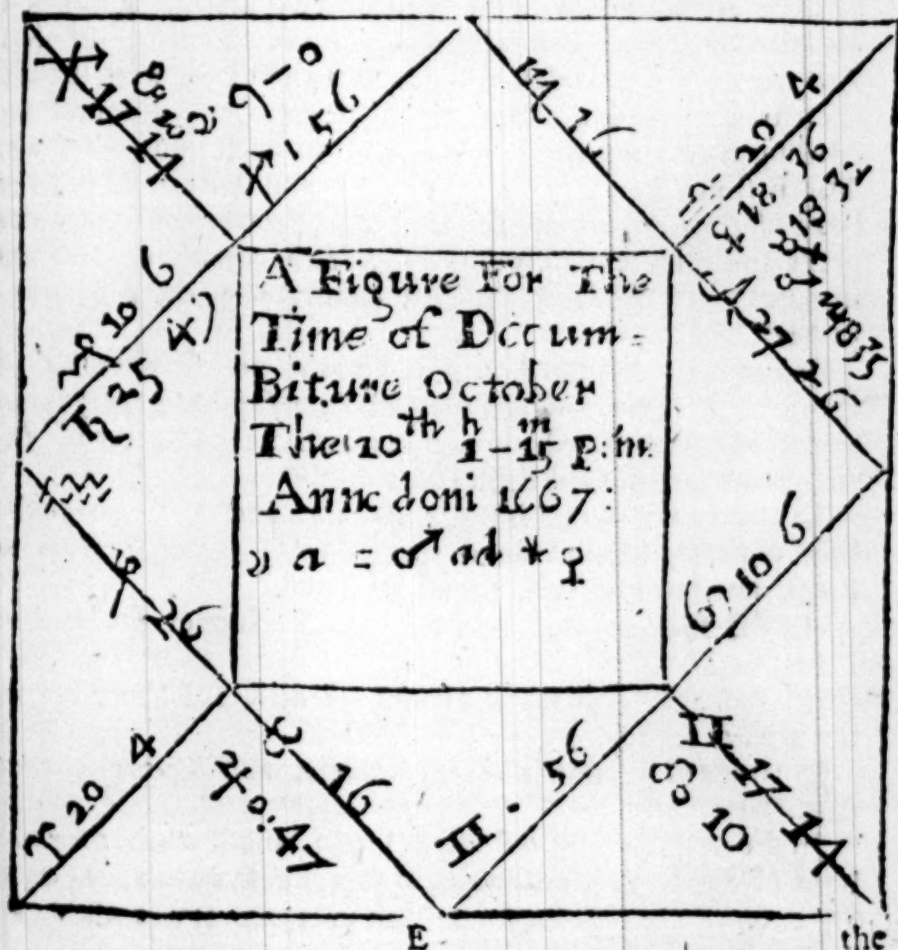 17 14
56
♏ 16
20 4
18 36
27 26
♑ 10 6
♄ 25
A Figure For The
Time of Dccum=
Biture October
The 10th h 1-15 m p:m
Anno doni 1667:
☽ a = ♂ ad * ♀
26
♋ 10 6
♈ 20 4
♉ 16
♃ 0:47
♊ · 56
♊ 17 14
10
E
the